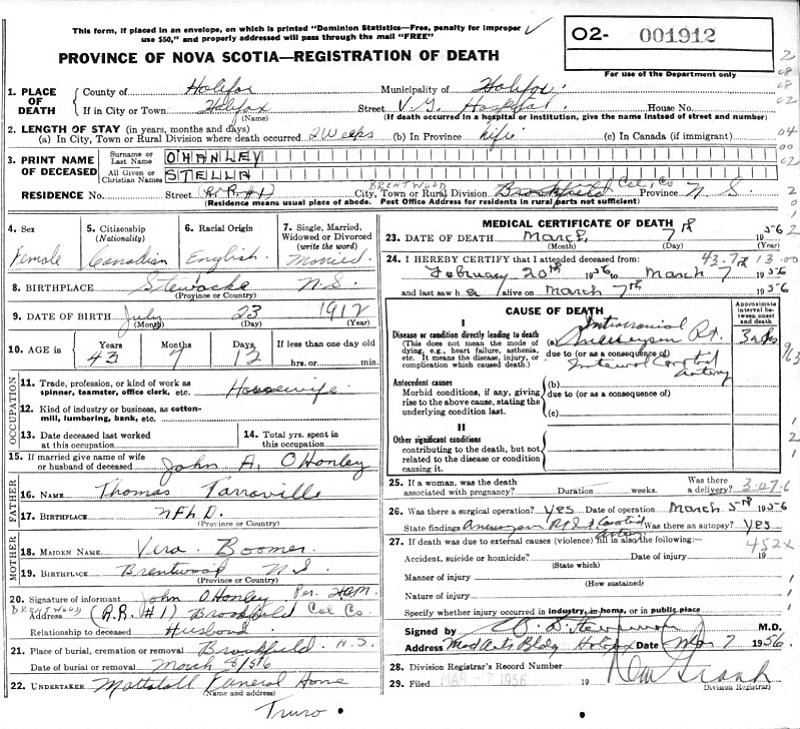 This form, if placed in an envelope, on which is printed "Dominion Statistics—Free, penalty for improper
use $50," and properly addressed will pass through the mail "FREE"
O2- 001912
For use of the Department only
PROVINCE OF NOVA SCOTIA—REGISTRATION OF DEATH
1. PLACE OF DEATH
County of Halifax Municipality of Halifax
If in City or Town Halifax Street V.G. Hospital House No.
(Name) (If death occurred in a hospital or institution, give the name instead of street and number)
2. LENGTH OF STAY (in years, months and days)
(a) In City, Town or Rural Division where death occurred 2 Weeks (b) In Province life (c) In Canada (if immigrant)
3. PRINT NAME OF DECEASED
Surname or Last Name O'HANLEY
All Given or Christian Names STELLA
BRENTWOOD
RESIDENCE No. Street (R.R.#1) City, Town or Rural Division Brookfield Col. Co Province N.S.
(Residence means usual place of abode. Post Office Address for residents in rural parts not sufficient)
4. Sex
Female
5. Citizenship (Nationality)
Canadian
6. Racial Origin
English
7. Single, Married, Widowed or Divorced (write the word)
Married
8. BIRTHPLACE Stewiacke N.S.
(Province or Country)
9. DATE OF BIRTH July 23 1912
(Month) (Day) (Year)
10. AGE in Years Months Days If less than one day old
43 7 12 hrs. or min.
OCCUPATION
11. Trade, profession, or kind of work as spinner, teamster, office clerk, etc. Housewife
12. Kind of industry or business, as cotton-mill, lumbering, bank, etc.
13. Date deceased last worked at this occupation
14. Total yrs. spent in this occupation
15. If married give name of wife or husband of deceased John A. O'Hanley
FATHER
16. NAME Thomas Tarraville
17. BIRTHPLACE NFLD.
(Province or Country)
MOTHER
18. MAIDEN NAME Vera Boomer
19. BIRTHPLACE Brentwood N.S.
(Province or Country)
20. Signature of informant John O'Hanley Per.
BRENTWOOD
Address (R.R. #1) Brookfield Col Co.
Relationship to deceased Husband
21. Place of burial, cremation or removal Brookfield N.S.
Date of burial or removal March 8/56
22. UNDERTAKER Mattatall Funeral Home
(Name and address)
Truro
MEDICAL CERTIFICATE OF DEATH
23. DATE OF DEATH March 7th 1956
(Month) (Day) (Year)
24. I HEREBY CERTIFY that I attended deceased from 43.7.12 13.00
February 20th 1956 to March 7 1956
and last saw her alive on March 7th 1956
CAUSE OF DEATH
Approximate interval between onset and death
I
Disease or condition directly leading to death
(This does not mean the mode of dying, e.g., heart failure, asthenia, etc. It means the disease, injury, or complication which caused death.)
(a) Intracranial Aneurysm Rt.
due to (or as a consequence of)
Internal Carotid Artery
Antecedent causes
Morbid conditions, if any, giving rise to the above cause, stating the underlying condition last.
(b)
due to (or as a consequence of)
(c)
II
Other significant conditions
contributing to the death, but not related to the disease or condition causing it.
25. If a woman, was the death associated with pregnancy? Duration weeks. Was there a delivery?
26. Was there a surgical operation? Yes Date of operation March 5th 1956
State findings Aneurysm Rt. I. Carotid Artery Was there an autopsy? Yes
27. If death was due to external causes (violence) fill in also the following:—
452X
Accident, suicide or homicide? Date of injury 19
(State which)
Manner of injury
(How sustained)
Nature of injury
Specify whether injury occurred in industry, in home, or in public place
Signed by M.D.
Address Med Arts Bldg Halifax Date Mar 7 1956.
28. Division Registrar's Record Number
29. Filed MAR -7 1956 19
Division Registrar